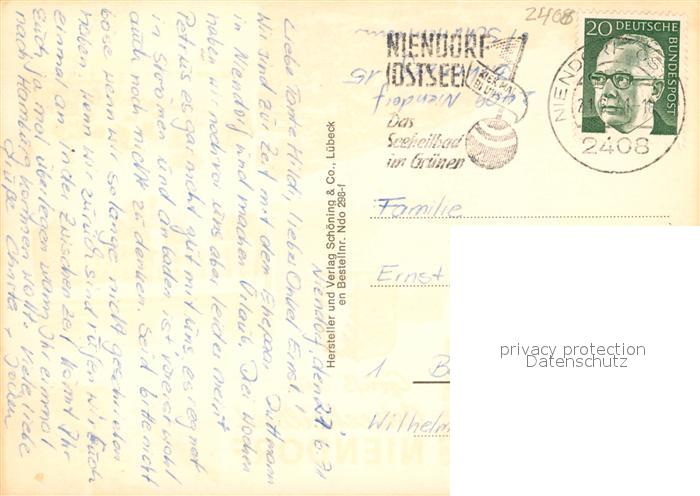 2408
NIENDORF
(OSTSEE)
Das
Seeheilbad
im Grünen
20 DEUTSCHE
BUNDESPOST
NIENDORF
2408
Familie
Ernst
1 B
Wilhelm
privacy protection
Datenschutz
Hersteller und Verlag Schöning & Co., Lübeck
en Bestellnr. Ndo 298-f
Niendorf, den 27.6.71
Liebe Tante Hildi, liebe Onkel Ernst!
Wir sind zur Zeit mit dem Ehepaar
in Niendorf und machen Urlaub. Drei Wochen
haben wir uns aber leider meint
Petrus es gar nicht gut mit uns, es regnet
in Strömen und an baden ist wohl
auch nicht zu denken. Seid bitte nicht
böse wenn wir solange nicht geschrieben
haben, wenn wir zurück sind rufen wir Euch
einmal an. In der zwischenzeit könnt Ihr
Euch ja mal überlegen wann Ihr einmal
nach Hamburg kommen wollt. Viele liebe
Grüße Christa +
NIENDORF